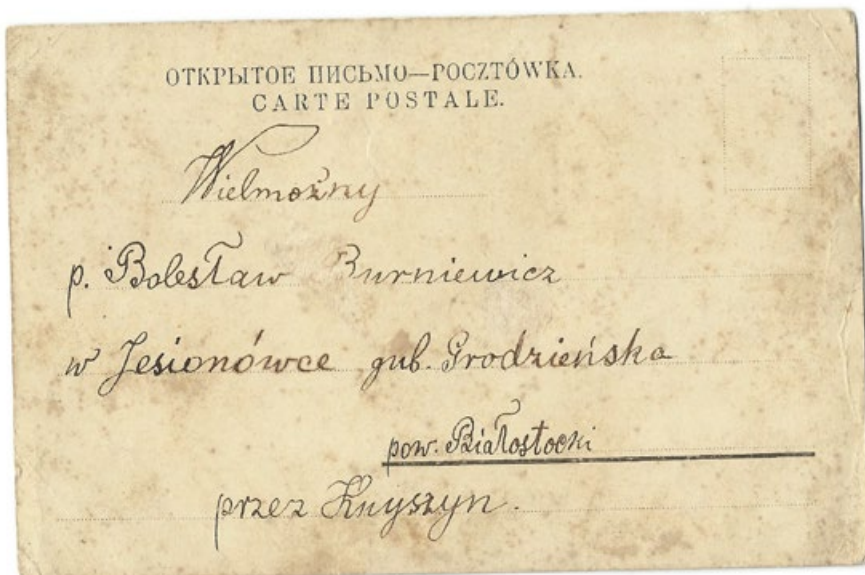 ОТКРЫТОЕ ПИСЬМО—POCZTÓWKA.
CARTE POSTALE.
Wielmożny
p. Bolesław Burniewicz
w Jesionówce gub. Grodzieńska
pow. Białostocki
przez Knyszyn.